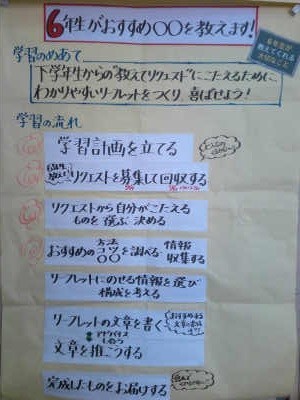 6年生がおすすめ〇〇を教えます!
学習のめあて
下学年生からの"教えてリクエスト"にこたえるために
わかりやすいリーフレットをつくり 喜ばせよう!
学習の流れ
学習計画を立てる
リクエストを募集して回収する
リクエストから自分がこたえる
ものを選ぶ 決める
おすすめの方法 コツ 〇〇を調べる・情報
収集する
リーフレットにのせる情報を選び
構成を考える
リーフレットの文章を書く
アドバイス
文章を推こうする
完成したものをお届けする